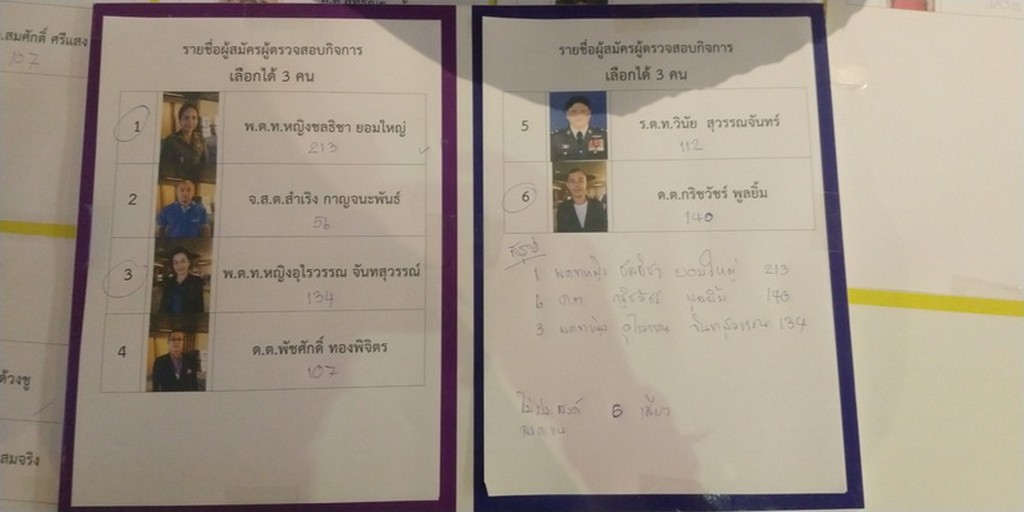 .สมศักดิ์ ศรีแสง
107
รายชื่อผู้สมัครผู้ตรวจสอบกิจการ
เลือกได้ 3 คน
1 พ.ต.ท.หญิงชลธิชา ยอมใหญ่
213
2 จ.ส.ต.สำเริง กาญจนะพันธ์
56
3 พ.ต.ท.หญิงอุไรวรรณ จันทสุวรรณ์
134
4 ด.ต.พัชศักดิ์ ทองพิจิตร
107
รายชื่อผู้สมัครผู้ตรวจสอบกิจการ
เลือกได้ 3 คน
5 ร.ต.ท.วินัย สุวรรณจันทร์
112
6 ด.ต.กริชวัชร์ พูลยิ้ม
140
สรุป
1 พ.ต.ท.หญิง ชลธิชา ยอมใหญ่ 213
6 ด.ต. กริชวัชร์ พูลยิ้ม 140
3 พ.ต.ท.หญิง อุไรวรรณ จันทสุวรรณ 134
ไม่ประสงค์ 6 เสียง
ลงคะแนน
ด้วงชู
สมจริง